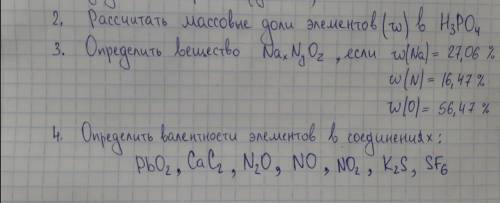 2. Рассчитать массовые доли элементов (w) в H₃PO₄
3. Определить вещество NaₓNᵧO_z, если w(Na) = 27,06 %
w(N) = 16,47 %
w(O) = 56,47 %
4. Определить валентности элементов в соединениях:
PbO₂, CaC₂, N₂O, NO, NO₂, K₂S, SF₆